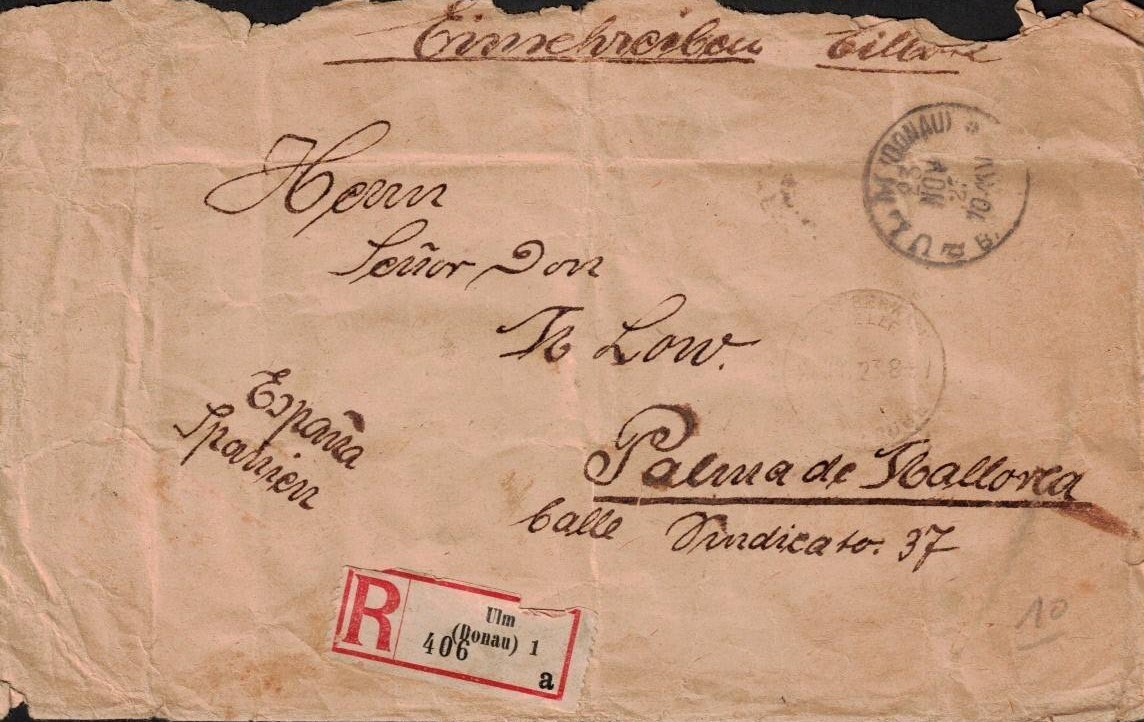 Einschreiben Eilbote
Herrn
Señor Don
N Low.
España
Spanien
Palma de Mallorca
Calle Sindicato. 37
ULM (DONAU)
23
NOV
10-11 V
23.8-1
R
Ulm
(Donau) 1
406
a
10